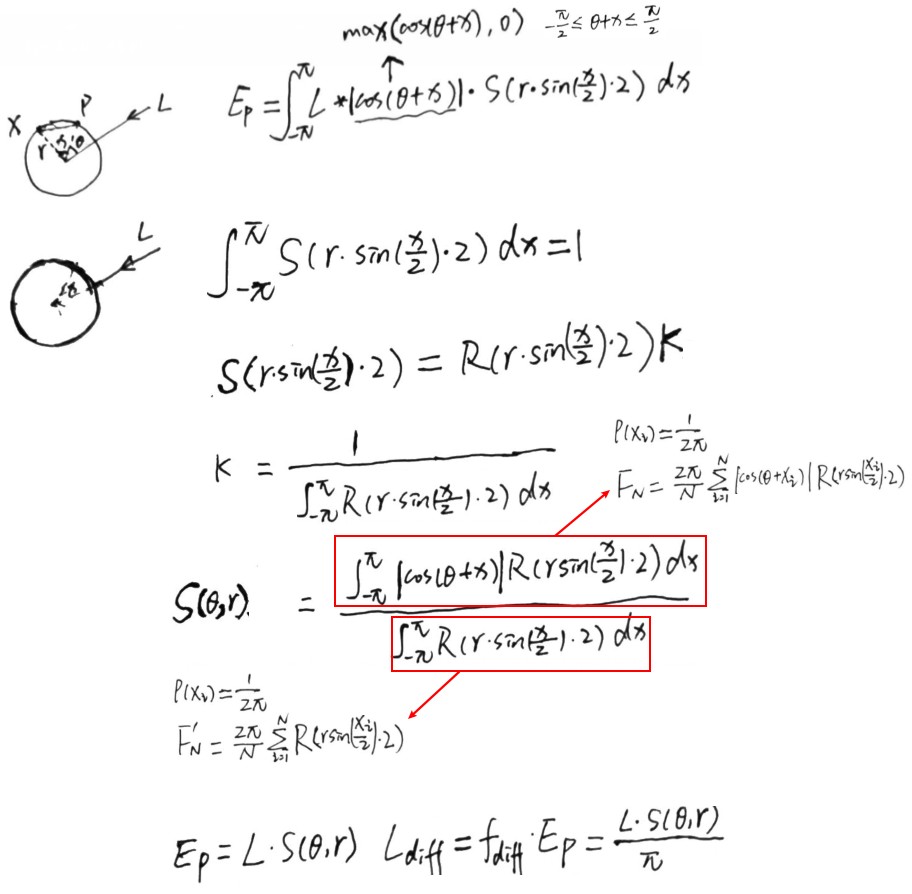 max(cos(θ+x), 0) -π/2 ≤ θ+x ≤ π/2
E_p = ∫_{-π}^{π} L * |cos(θ+x)| · S(r·sin(x/2)·2) dx
X P L
r x θ
L
x
∫_{-π}^{π} S(r·sin(x/2)·2) dx = 1
S(r·sin(x/2)·2) = R(r·sin(x/2)·2) K
K = 1 / ∫_{-π}^{π} R(r·sin(x/2)·2) dx
P(X_i) = 1/2π
F_N = 2π/N Σ_{i=1}^{N} |cos(θ+X_i)| R(r sin(X_i/2)·2)
S(θ,r) = ∫_{-π}^{π} |cos(θ+x)| R(r sin(x/2)·2) dx / ∫_{-π}^{π} R(r·sin(x/2)·2) dx
P(X_i) = 1/2π
F'_N = 2π/N Σ_{i=1}^{N} R(r sin(X_i/2)·2)
E_p = L·S(θ,r) L_diff = f_diff · E_p = L·S(θ,r) / π